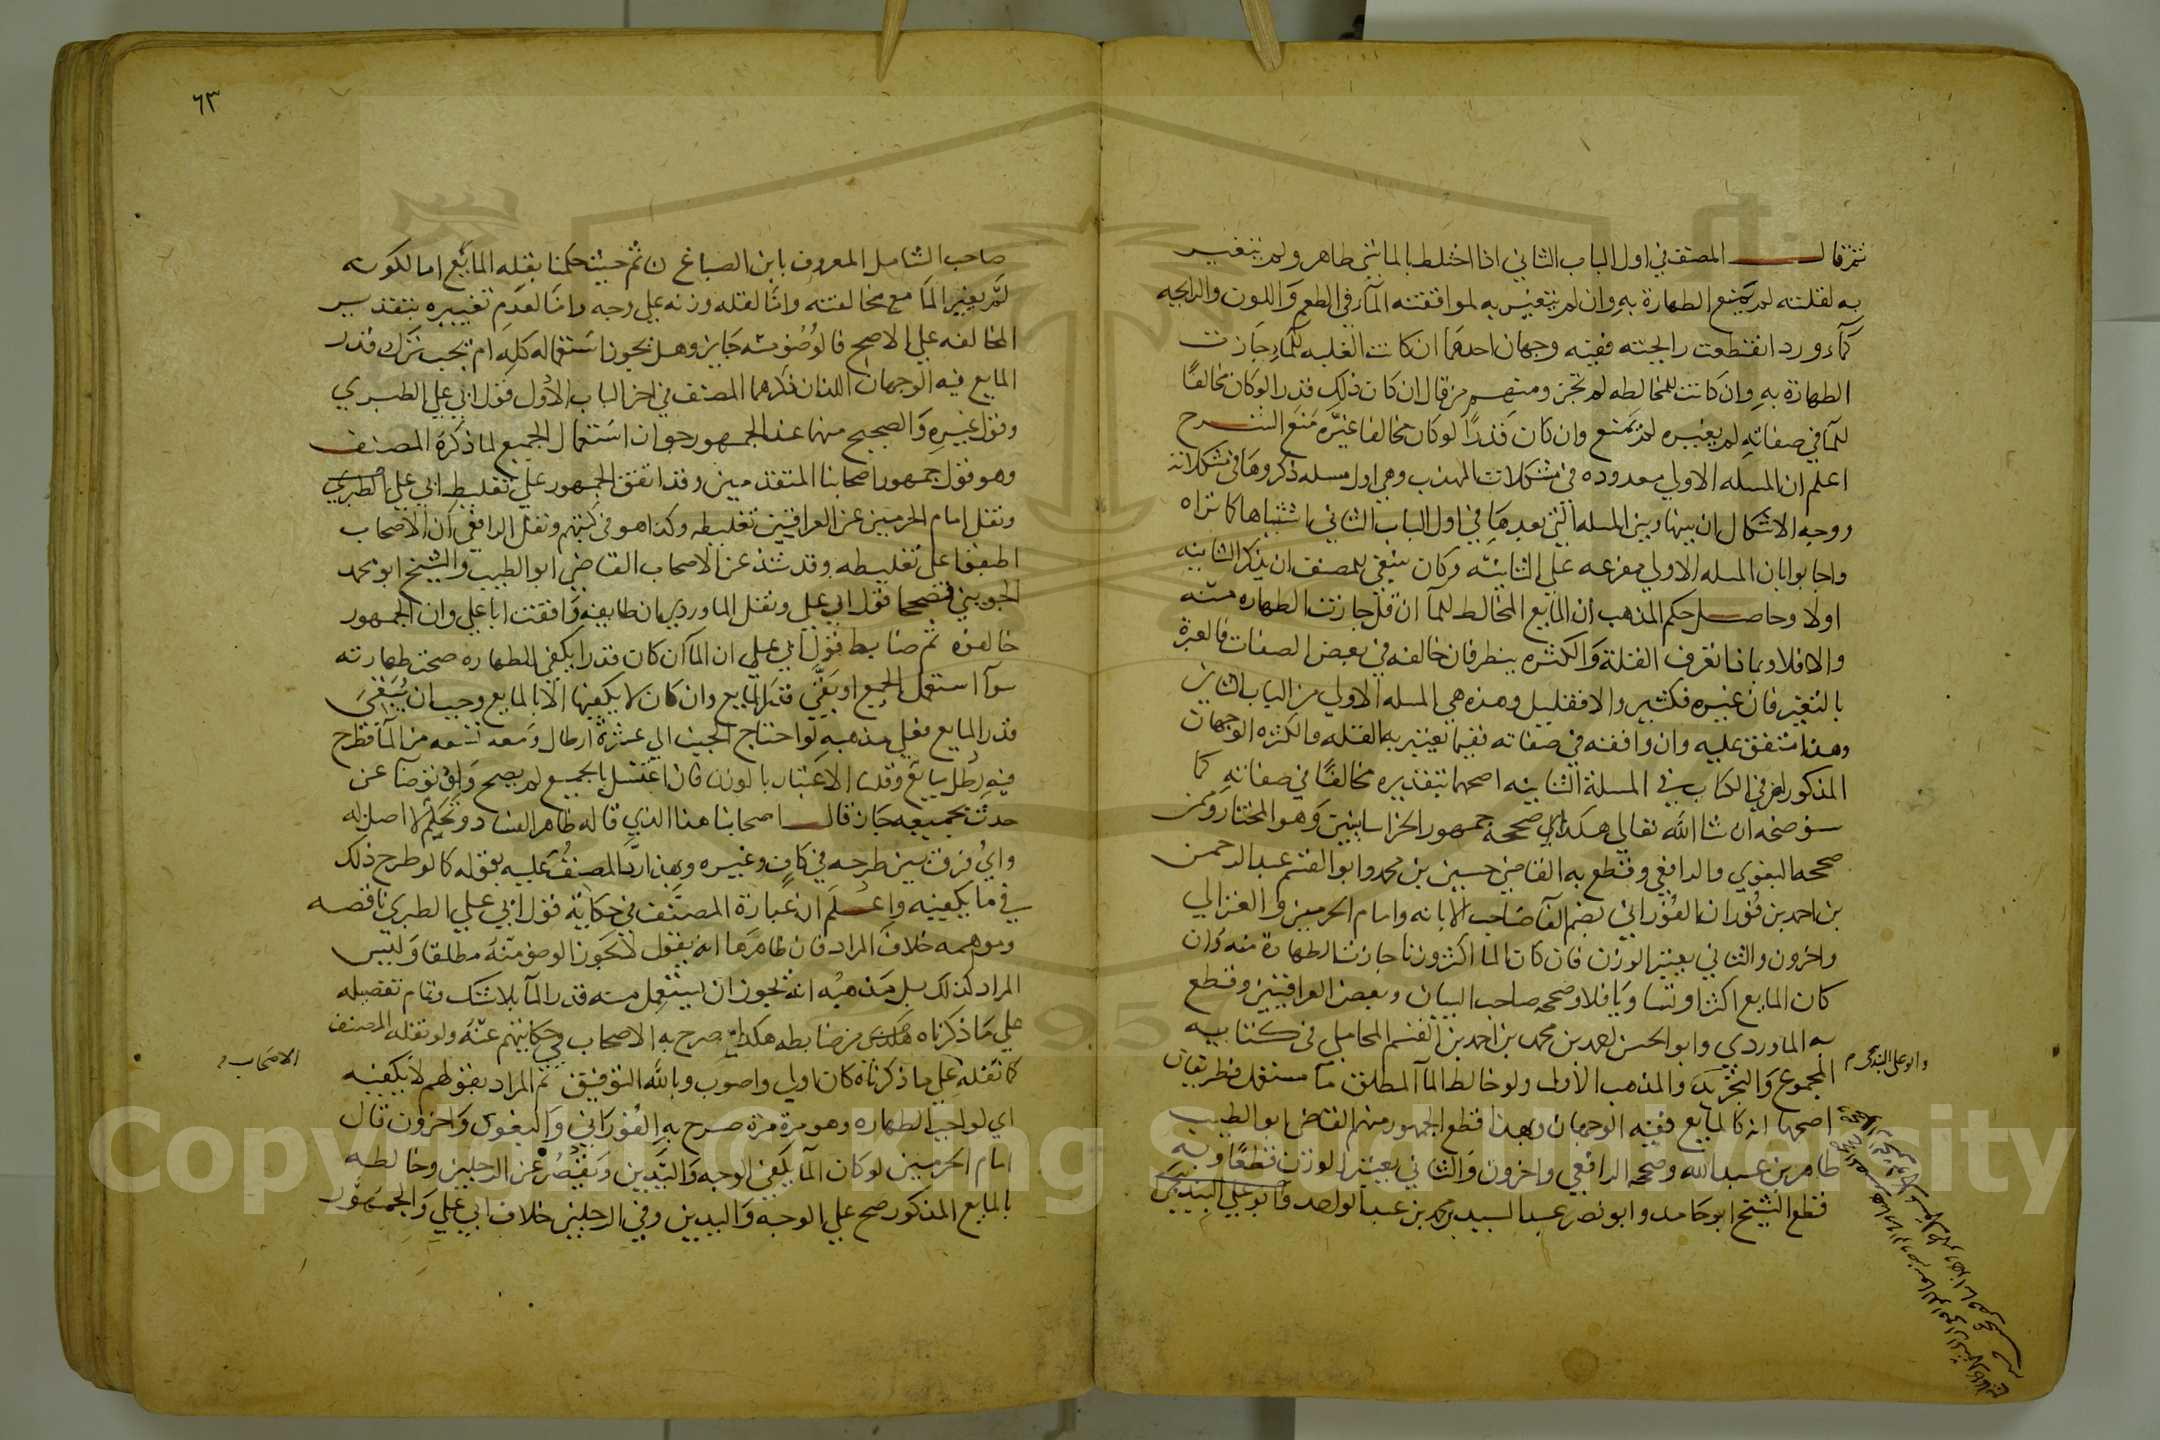 ثم قال المصنف في اول الباب الثاني اذا اختلط بالما شي طاهر ولم يتغير
به لقلته لم يمنع الطهارة به وان لم يتغير به لموافقته المآ في الطعم واللون والرايحه
كمآء ورد انقطعت رايحته ففيه وجهان احدهما ان كانت الغلبه للمآء جازت
الطهارة به وان كانت للمخالطه لم تجز ومنهم من قال ان كان ذلك قدرا لو كان مخالفًا
للمآ في صفاته لم يغيره لم يمنع وان كان قدرًا لو كان مخالفا غيَّره مَنَع الشرح
اعلم ان المسله الاولي معدوده في مشكلات المهذب وهي اول مسله ذكروها في مشكلاته
ووجه الاشكال ان بينها وبين المسله التي بعدها في اول الباب الثاني اشتباها كما تراه
واجابوا بان المسله الاولي مفرعه علي الثانيه وكان ينبغي للمصنف ان يذكر الثانيه
اولا وحاصل حكم المذهب ان المايع المخالط للمآ ان قل جازت الطهاره منه
والا فلا وبماذا نعرف القلة والكثره ينظر فان خالفه في بعض الصفات فالعبرة
بالتغير فان غيره فكثير والا فقليل وهذه هي المسله الاولي من الباب الثاني
وهذا متفق عليه وان وافقه في صفاته ففيما تعتبر به القله والكثره الوجهان
المذكوران في الكتاب في المسلة الثانيه اصحهما بتقديره مخالفًا في صفاته كما
سنوضحه ان شا الله تعالي هكذا صححه جمهور الخراسانيين وهو المختار وممن
صححه البغوي والرافعي وقطع به القاضي حسين بن محمد وابو القسم عبد الرحمن
بن احمد بن فُوران الفُوراني بضم الفآ صاحب الابانه وامام الحرمين والغزالي
واخرون والثاني يعتبر الوزن فان كان الما اكثر وزنا جازت الطهارة منه وان
كان المايع اكثر او تساويا فلا وصححه صاحب البيان وبعض العراقيين وقطع
به الماوردي وابو الحسن احمد بن محمد بن احمد بن القسم المحاملي في كتابيه
المجموع والتجريد والمذهب الاول ولو خالط المآ المطلق مآ مستعمل فطريقان
اصحهما انه كالمايع ففيه الوجهان وبهذا قطع الجمهور منهم القاضي ابو الطيب
طاهر بن عبد الله وصححه الرافعي واخرون والثاني يعتبر الوزن قطعًا وبه
قطع الشيخ ابو حامد وابو نصر عبد السيد بن محمد بن عبد الواحد وابو علي البندنيجي
وابو علي البندنيجي
٦٣
صاحب الشامل المعروف بابن الصباغ ثم حيث حكمنا بقله المايع اما لكونه
لم يغير المآ مع مخالفته واما لقله وزنه علي وجه واما لعدم تغييره بتقدير
المخالفه علي الاصح فالوُضُوء منه جايز وهل يجوز استعماله كله ام يجب ترك قدر
المايع فيه الوجهان اللذان ذكرهما المصنف في اخر الباب الاول قول ابي علي الطبري
وقول غيره والصحيح منهما عند الجمهور جواز استعمال الجميع لما ذكره المصنف
وهو قول جمهور اصحابنا المتقدمين وقد اتفق الجمهور علي تغليط ابي علي الطبري
ونقل امام الحرمين عن العراقيين تغليطه وكذا هو في كتبهم ونقل الرافعي ان الاصحاب
اطبقوا علي تغليطه وقد شذ عن الاصحاب القاضي ابو الطيب والشيخ ابو محمد
الجويني فصححا قول ابي علي ونقل الماوردي ان طايفه وافقت ابا علي وان الجمهور
خالفوه ثم ضابط قول ابي علي ان المآ ان كان قدرا يكفي للطهاره صحت طهارته
سوآ استعمل الجميع او بقَّي قدر المايع وان كان لا يكفيها الا بالمايع وجب ان يُبَقي
قدر المايع فعلي مذهبه لو احتاج الجنب الي عشرة ارطال ومعه تسعه من المآ فطرح
فيه رطل مايع وقلنا الاعتبار بالوزن فان اغتسل بالجميع لم يصح ولو توضأ عن
حدث بجميعه جاز قال اصحابنا هذا الذي قاله ظاهر الفساد وتحكُّم لا اصل له
واي فرق بين طرحه في كاف وغيره وبهذا ردَّ المصنف عليه بقوله كما لو طرح ذلك
في ما يكفيه واعلم ان عبارة المصنف في حكاية قول ابي علي الطبري ناقصه
وموهمه خلاف المراد فان ظاهرها انه يقول لا يجوز الوضو منه مطلقا وليس
المراد كذلك بل مذهبه انه يجوز ان يستعمل منه قدر المآ بلا شك وتمام تفصيله
علي ما ذكرناه من ضابطه هكذا صرح به الاصحاب في حكايتهم عنه ولو نقله المصنف
كما نقله علي ما ذكرناه كان اولي واصوب وبالله التوفيق ثم المراد بقولهم لا يكفيه
اي لواجب الطهاره وهو مرة مرة صرح به الفُوراني والبغوي واخرون قال
امام الحرمين لو كان المآ يكفي الوجه واليدين ويقصُر عن الرجلين وخالطه
بالمايع المذكور صح علي الوجه واليدين وفي الرجلين خلاف ابي علي والجمهور
الاصحاب